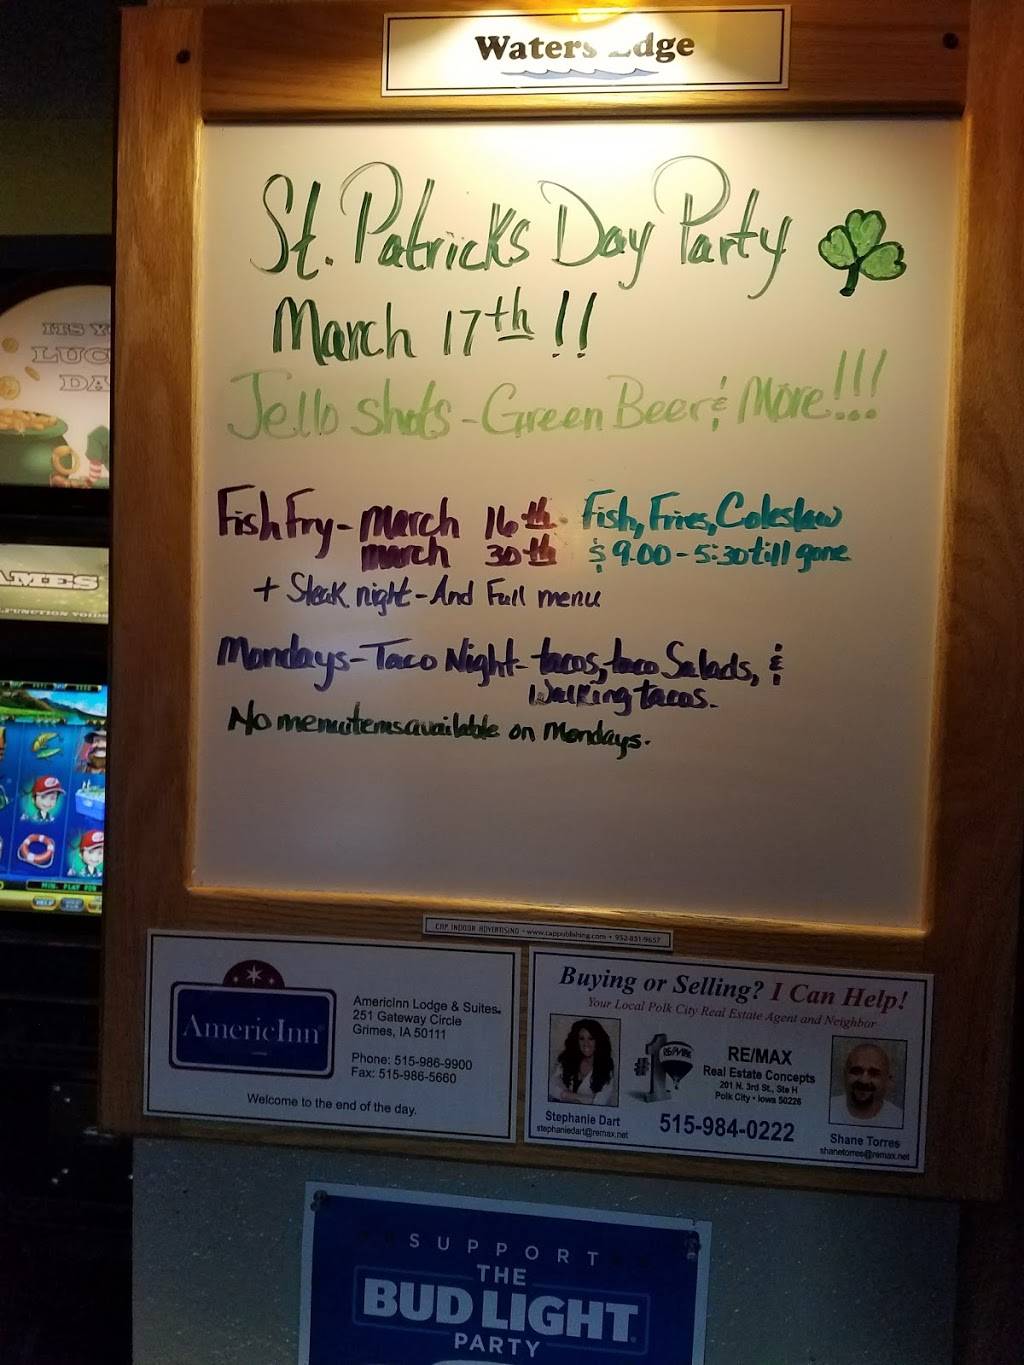 Waters Edge
St. Patricks Day Party
March 17th !!
Jello Shots - Green Beer & More!!!
Fish Fry - March 16th - Fish, Fries, Coleslaw
March 30th $9.00 - 5:30 till gone
+ Steak night - And Full menu
Mondays - Taco Night - tacos, taco Salads, &
Walking tacos.
No menu items available on Mondays.
ITS Y
LUC
DA
AMES
MIN. PLAY FOR
HELP
CAP INDOOR ADVERTISING • www.cappublishing.com • 952-851-9657
AmericInn
AmericInn Lodge & Suites
251 Gateway Circle
Grimes, IA 50111
Phone: 515-986-9900
Fax: 515-986-5660
Welcome to the end of the day.
Buying or Selling? I Can Help!
Your Local Polk City Real Estate Agent and Neighbor
RE/MAX
RE/MAX
Real Estate Concepts
201 N. 3rd St., Ste H
Polk City • Iowa 50226
515-984-0222
Stephanie Dart
stephaniedart@remax.net
Shane Torres
shanetorres@remax.net
SUPPORT
THE
BUD LIGHT
PARTY